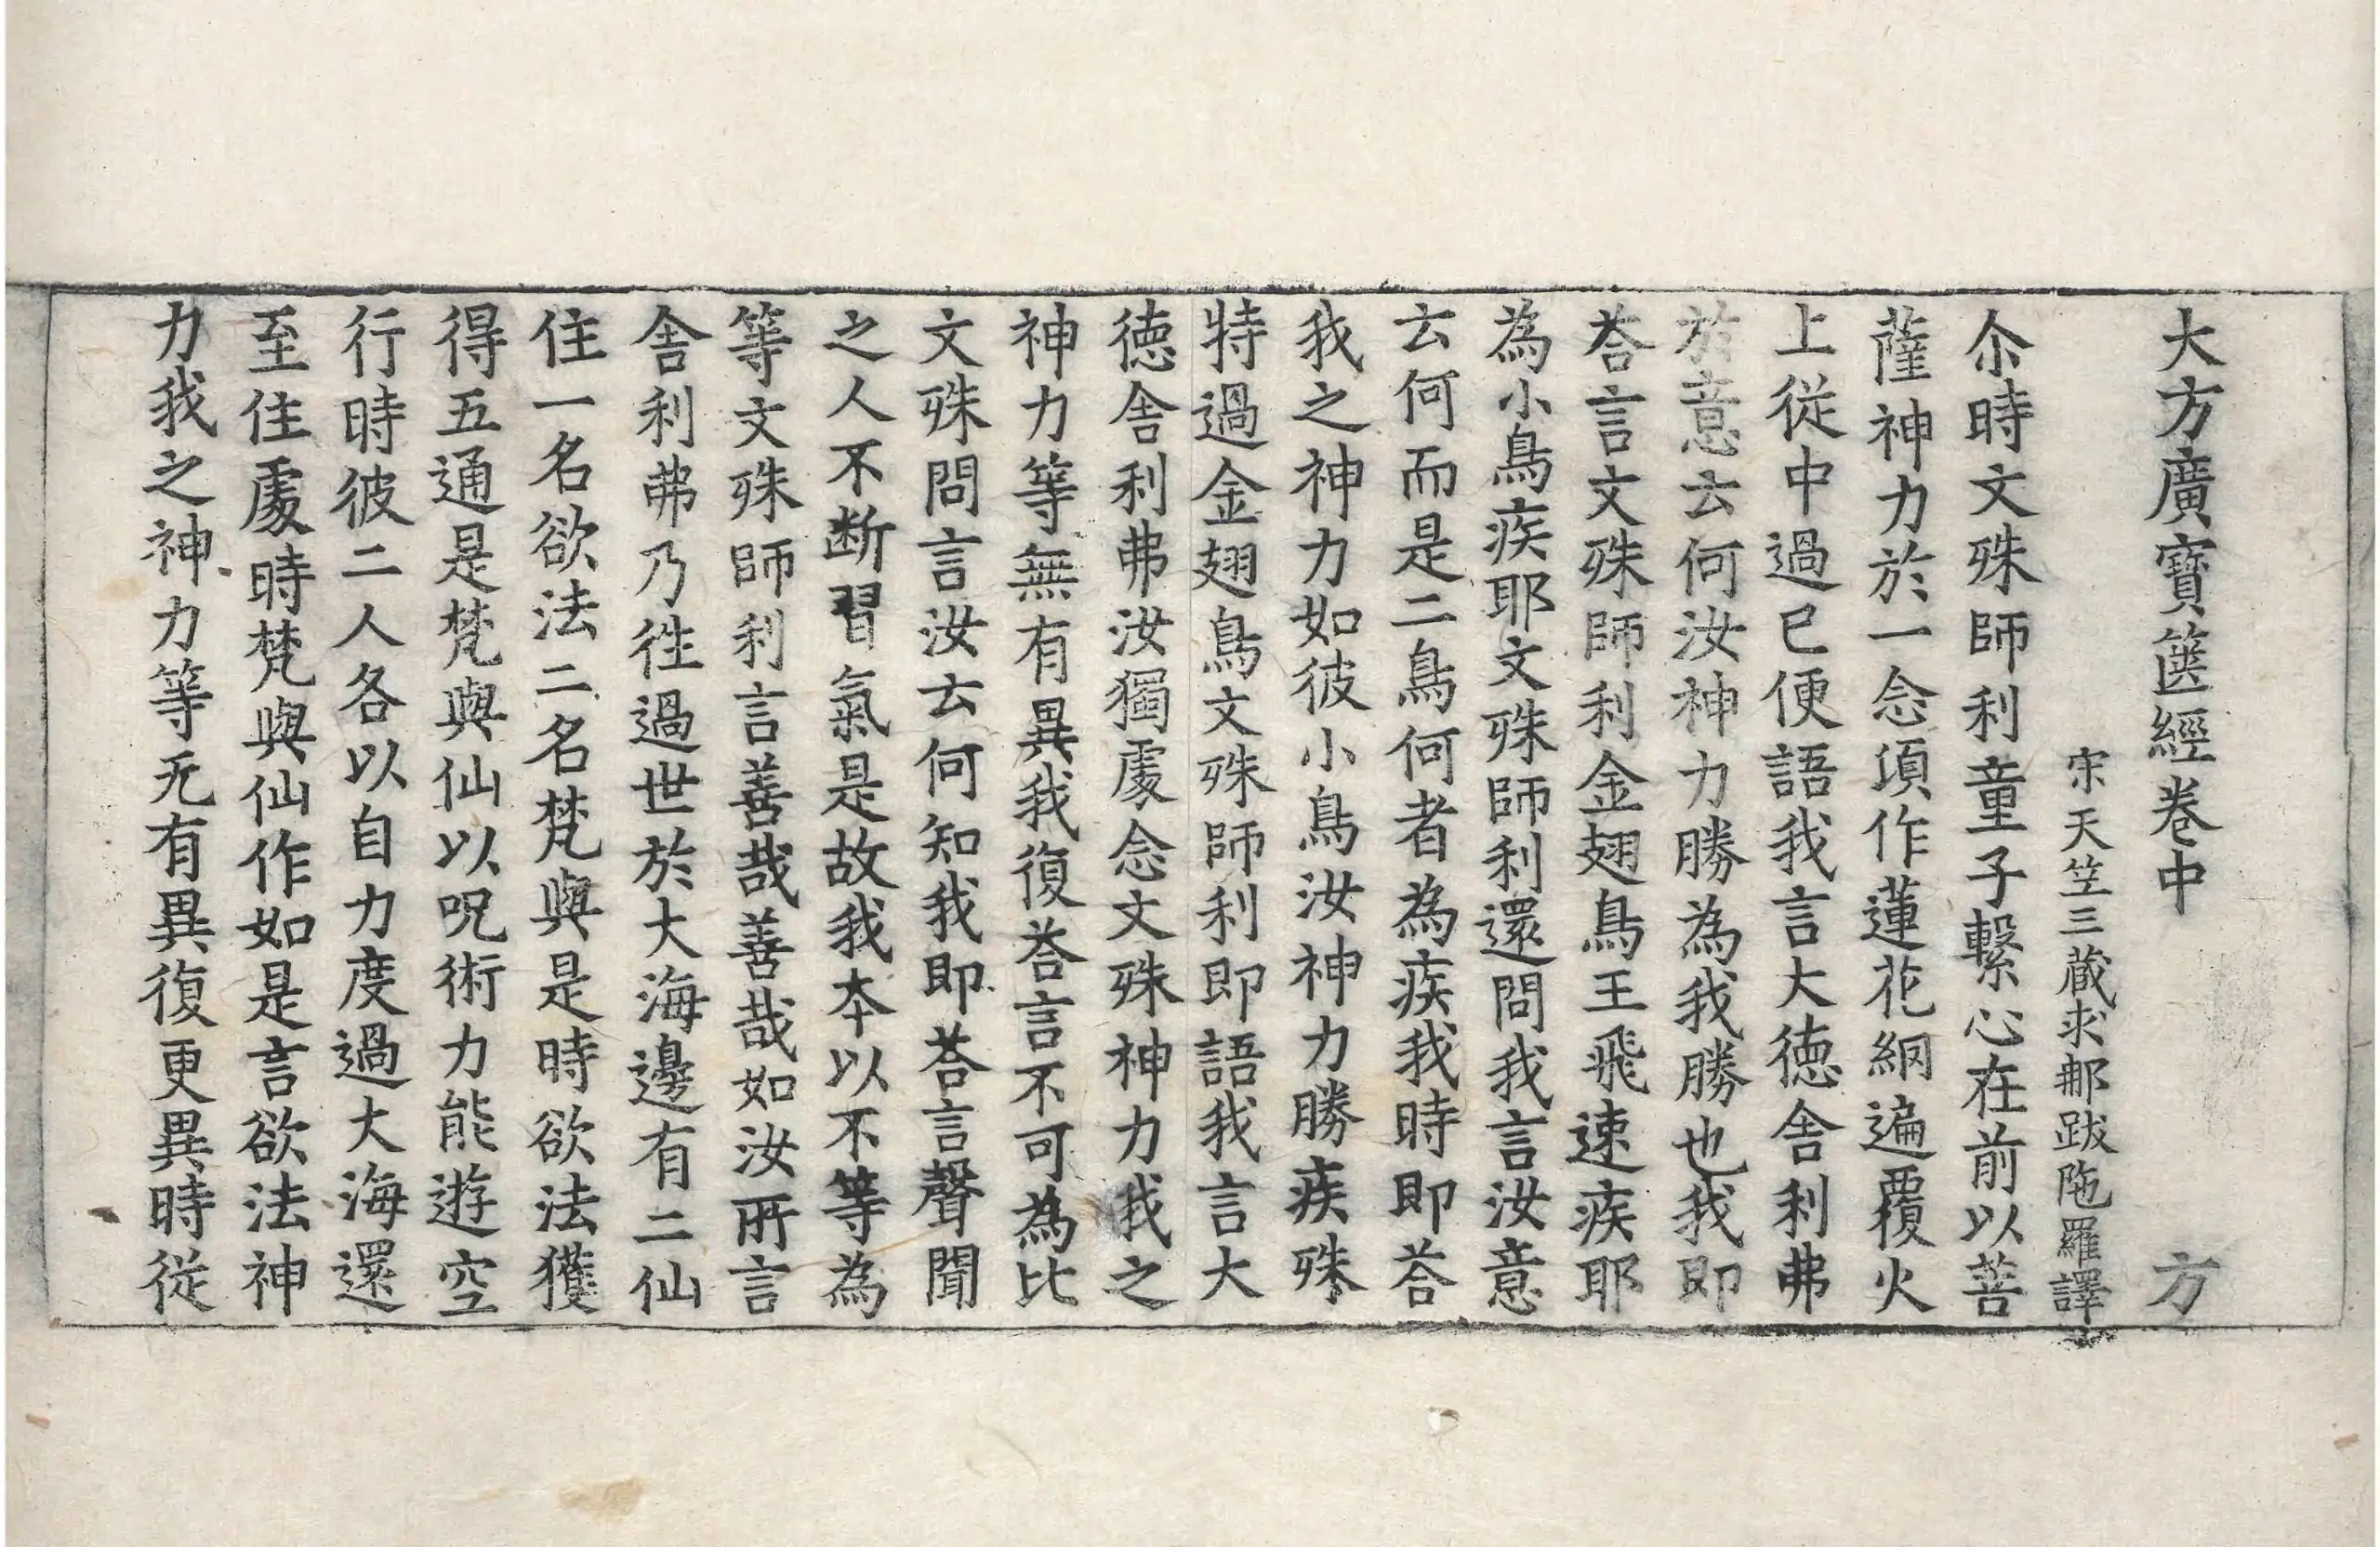 大方廣寳篋經卷中 方
宋天竺三藏求𨙻跋陁羅譯
尒時文殊師利童子繫心在前以菩
薩神力於一念頃作蓮花網遍覆火
上從中過已便語我言大德舍利弗
於意云何汝神力勝為我勝也我即
荅言文殊師利金翅鳥王飛速疾耶
為小鳥疾耶文殊師利還問我言汝意
云何而是二鳥何者為疾我時即荅
我之神力如彼小鳥汝神力勝疾殊
特過金翅鳥文殊師利即語我言大
德舍利弗汝獨處念文殊神力我之
神力等無有異我復荅言不可為比
文殊問言汝云何知我即荅言聲聞
之人不断習氣是故我本以不等為
等文殊師利言善哉善哉如汝所言
舍利弗乃徃過世於大海邊有二仙
住一名欲法二名梵與是時欲法獲
得五通是梵與仙以呪術力能遊空
行時彼二人各以自力度過大海還
至住處時梵與仙作如是言欲法神
力我之神力等无有異復更異時從